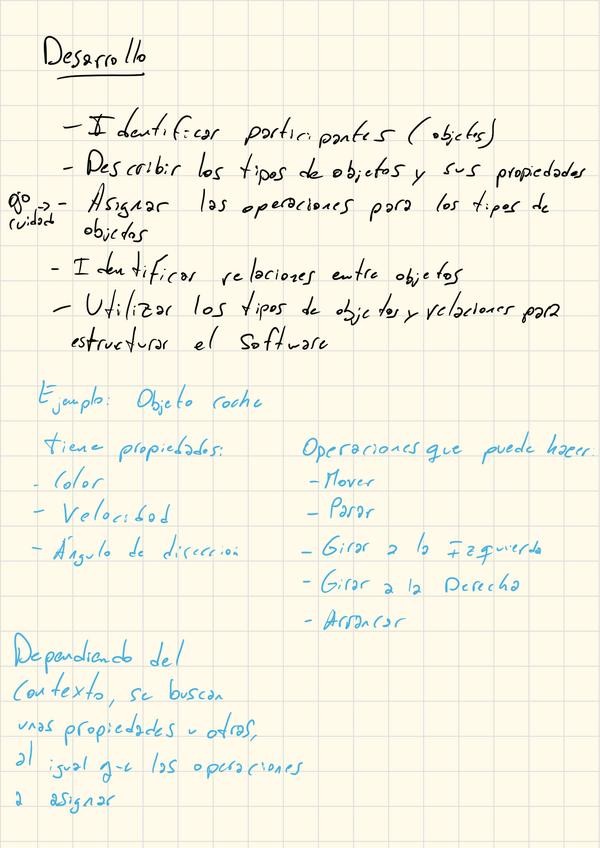 Desarrollo
- Identificar participantes (objetos)
- Describir los tipos de objetos y sus propiedades
ojo → - Asignar las operaciones para los tipos de
cuidado
objetos
- Identificar relaciones entre objetos
- Utilizar los tipos de objetos y relaciones para
estructurar el Software
Ejemplo: Objeto coche
tiene propiedades:
- Color
- Velocidad
- Ángulo de dirección
Operaciones que puede hacer:
- Mover
- Parar
- Girar a la Izquierda
- Girar a la Derecha
- Arrancar
Dependiendo del
contexto, se buscan
unas propiedades u otras,
al igual que las operaciones
a asignar